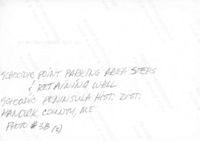 SCHOODIC POINT PARKING AREA STEPS
& RETAINING WALL
SCHOODIC PENINSULA HIST. DIST.
HANCOCK COUNTY, ME
PHOTO #38